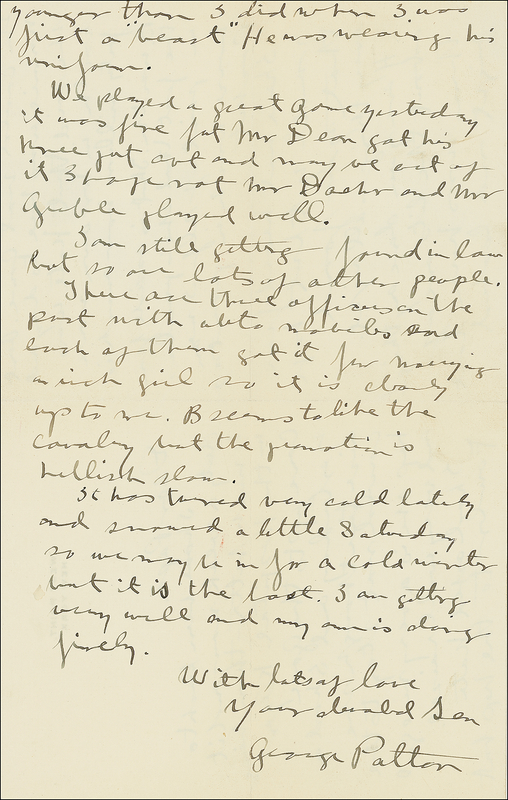 younger than I did when I was
just a "beast" He was wearing his
uniform.
We played a great game yesterday
it was fine but Mr Dean got his
knee put out and may be out of
it I hope not Mr Dacher and Mr
Greble played well.
I am still getting found in law
but so are lots of other people.
There are three officers on the
post with auto mobiles and
each of them got it for marrying
a rich girl so it is clearly
up to me. B seems to like the
cavalry but the promotion is
hellish slow.
It has turned very cold lately
and snowed a little Saturday
so we may be in for a cold winter
but it is the last. I am getting
very well and my arm is doing
finely.
With lots of love
Your devoted Son
George Patton